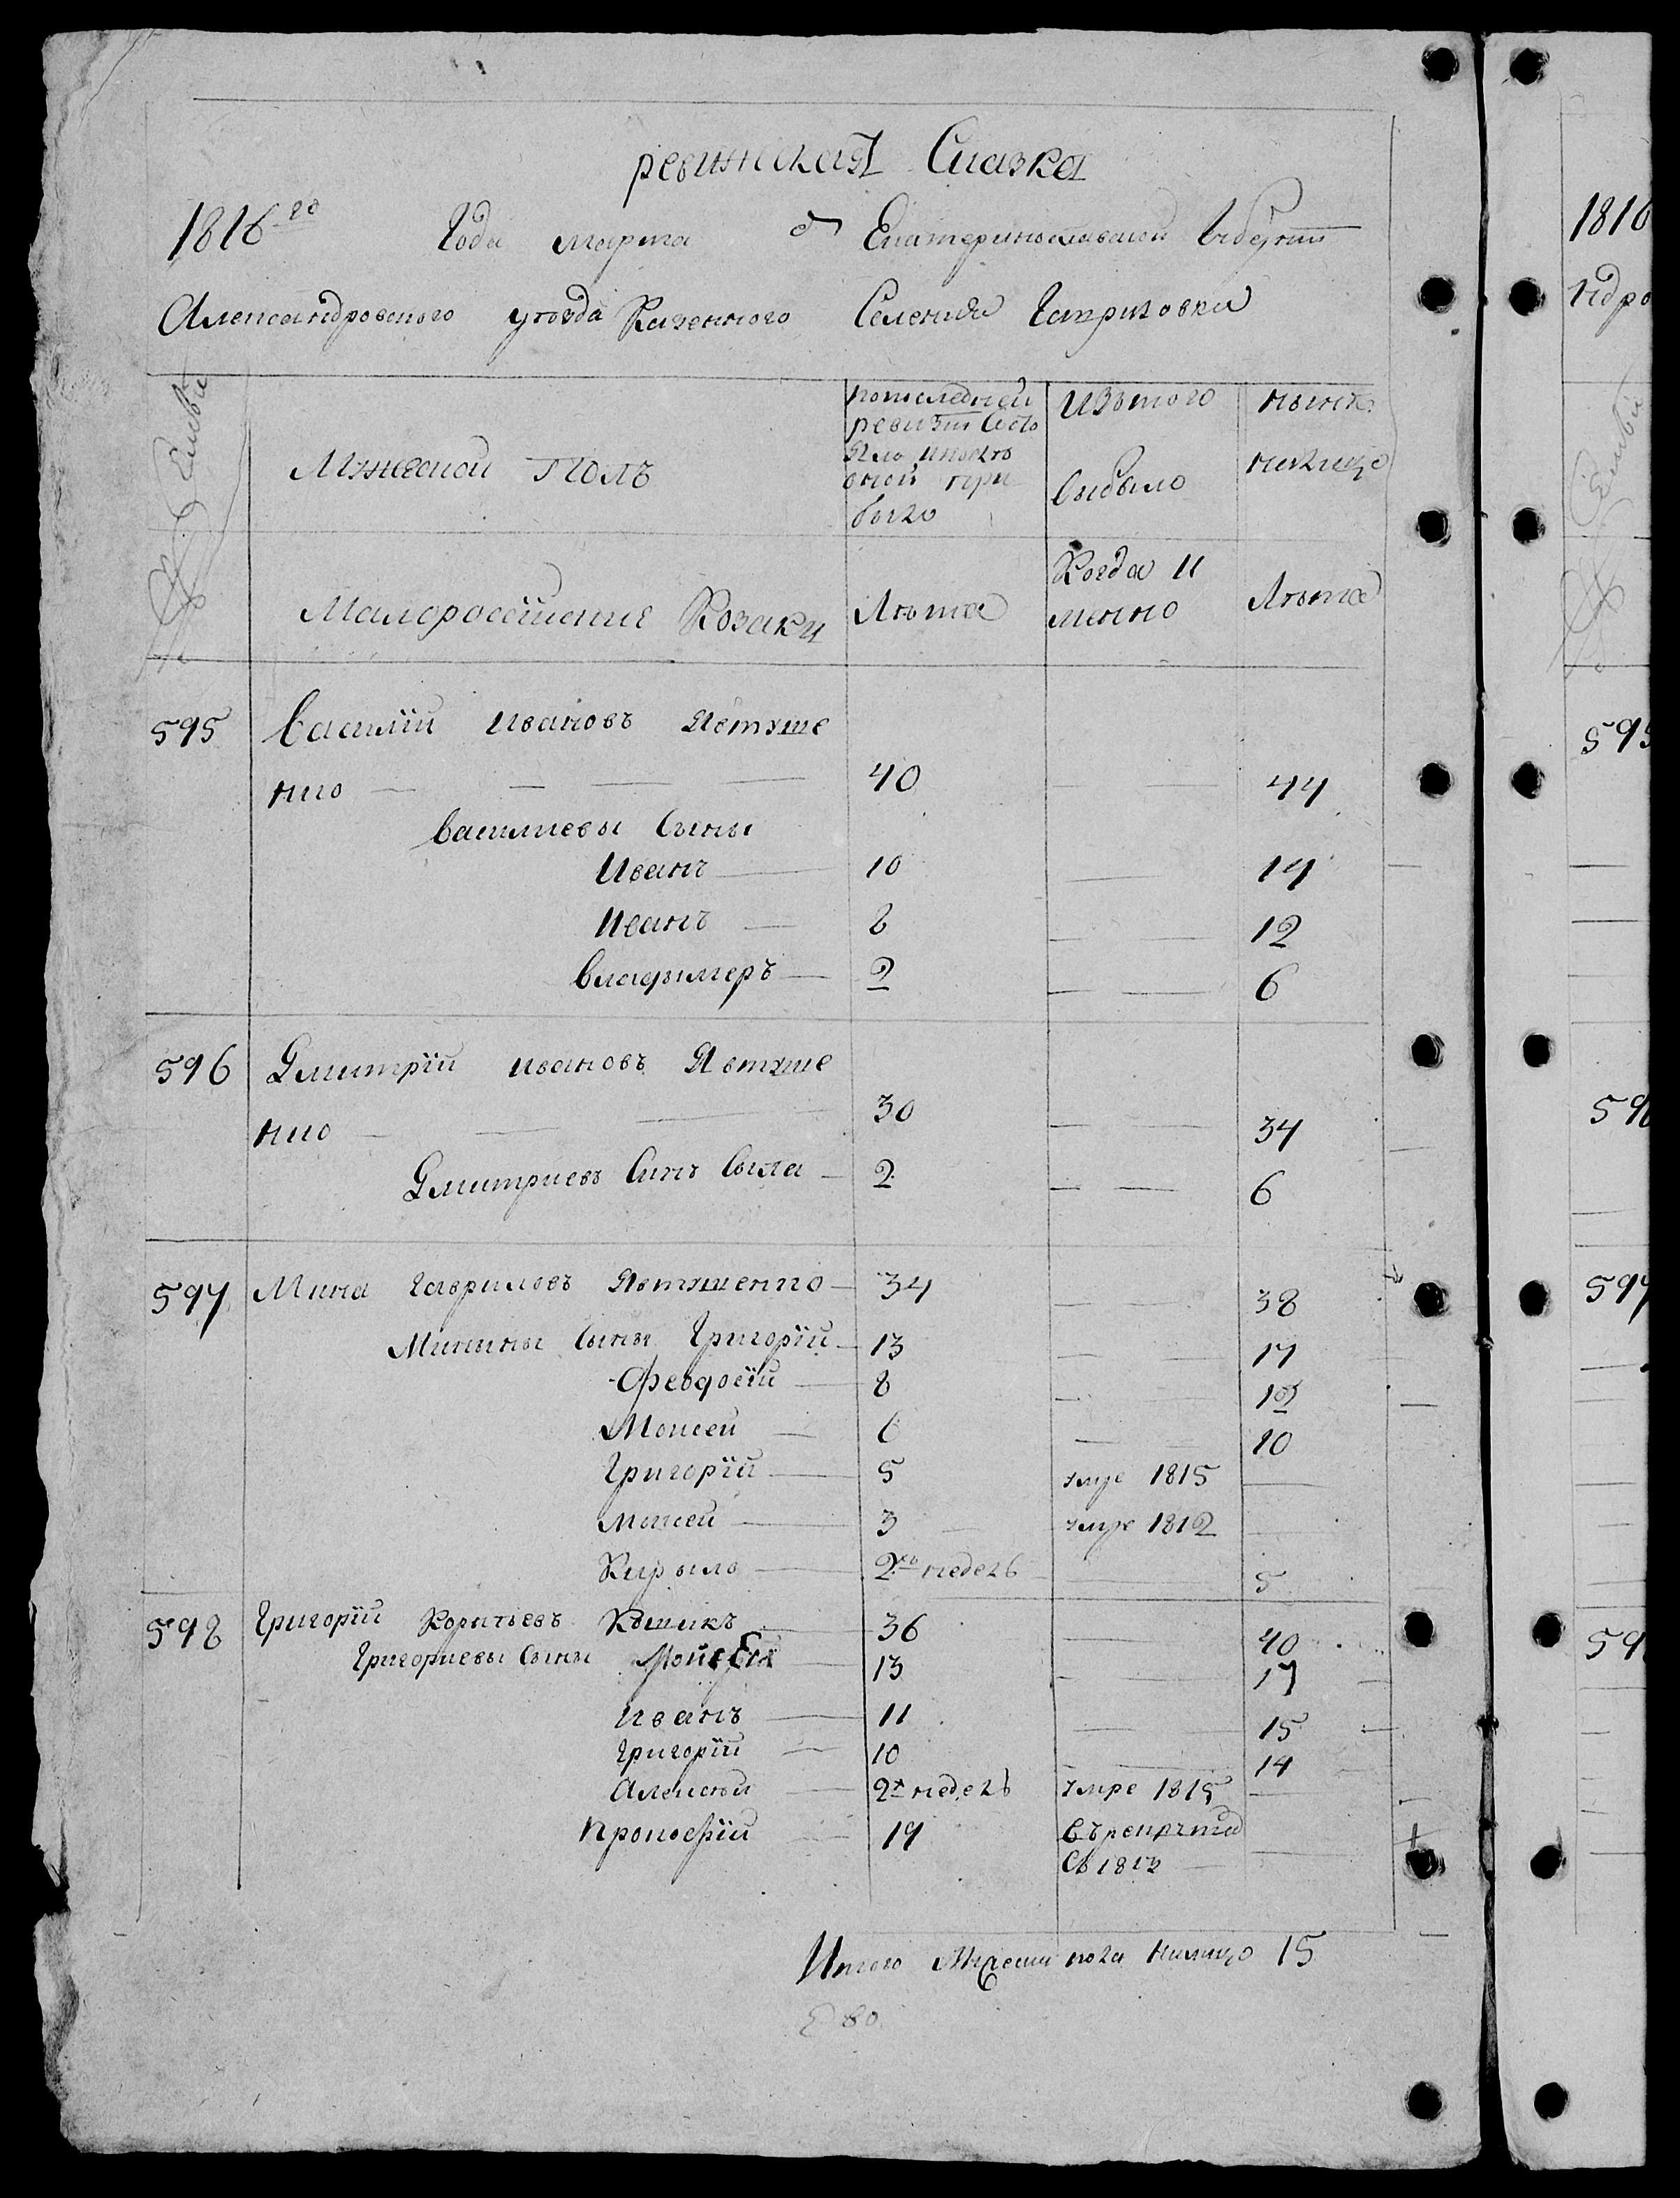 ревижская Сказка
1816го Года марта Екатеринославской Губернии
Александровского уезда Казенного Селения Гавриловки
Мужеской Полъ
попоследней ревизии состояло ипосле оной прибыло
Изъ того выбыло
нынѣ налицо
Малоросейские Козаки
Лѣта
Когда именно
Лѣта
595 Василій Ивановъ Явтуше
нко 40 44
васильевы Сыны
Иванъ 10 14
Иванъ 8 12
владимеръ 2 6
596 Дмитрій Ивановъ Явтуше
нко 30 34
Дмитриевъ Синъ Сыла 2 6
597 Мина Гавриловъ Явтушенко 34 38
Минины Сыны Григорій 13 17
Феодосій 8 12
Моисей 6 10
Григорій 5 умре 1815
Моисей 3 умре 1812
Кирыло 2хъ недель 5
598 Григорій Кошикъ 36 40
Григориевы Сыны Моисей 13 17
Иванъ 11 15
Григорій 10 14
Алексей 2х недель умре 1815
Прокофій 19 въ рекруты
Съ 1812
Итого Мужеска пола налицо 15
80
1816
ндро
595
596
597
59